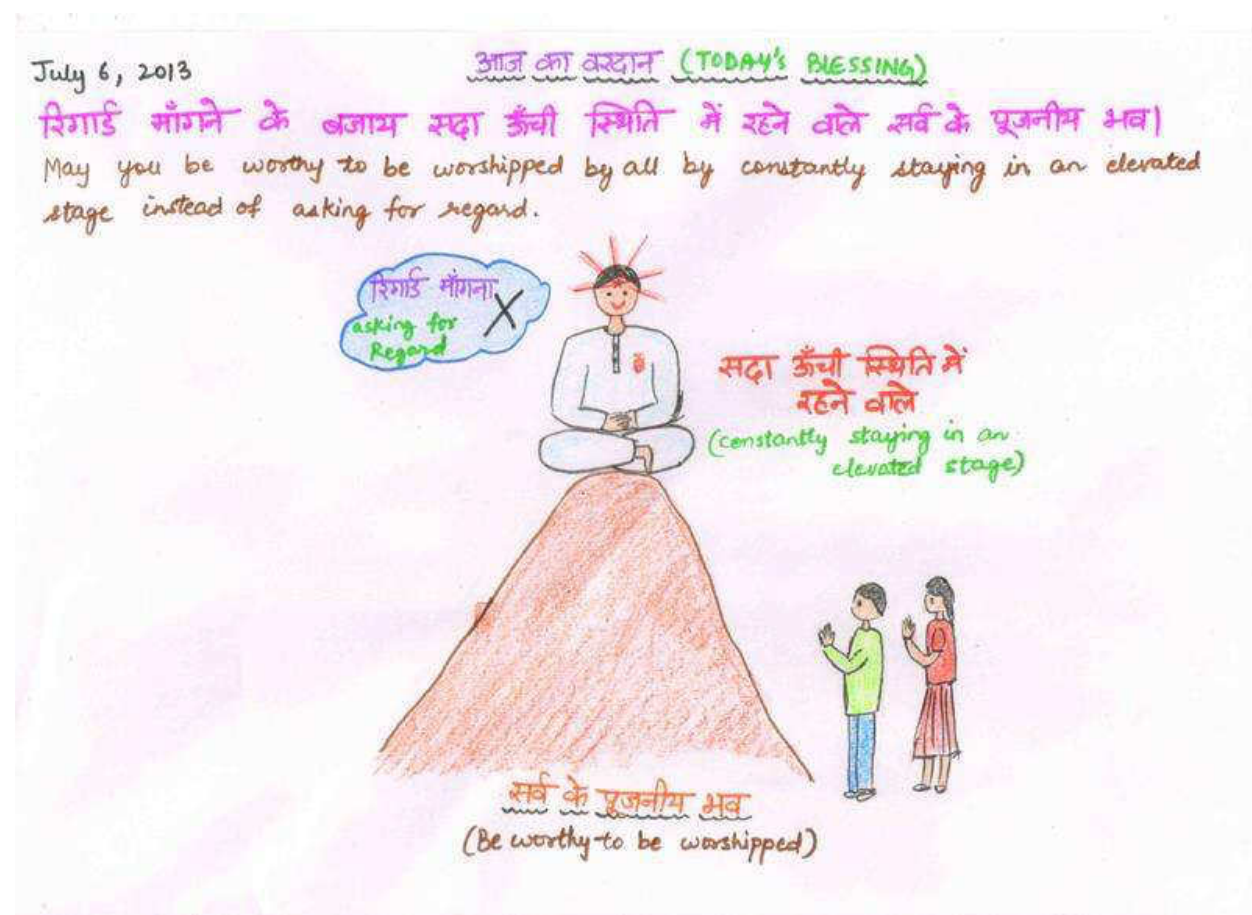 July 6, 2013
आज का वरदान (TODAY'S BLESSING)
रिगार्ड माँगने के बजाय सदा ऊँची स्थिति में रहने वाले सर्व के पूजनीय भव।
May you be worthy to be worshipped by all by constantly staying in an elevated
stage instead of asking for regard.
रिगार्ड माँगना
asking for
Regard
सदा ऊँची स्थिति में
रहने वाले
(constantly staying in an
elevated stage)
सर्व के पूजनीय भव
(Be worthy to be worshipped)